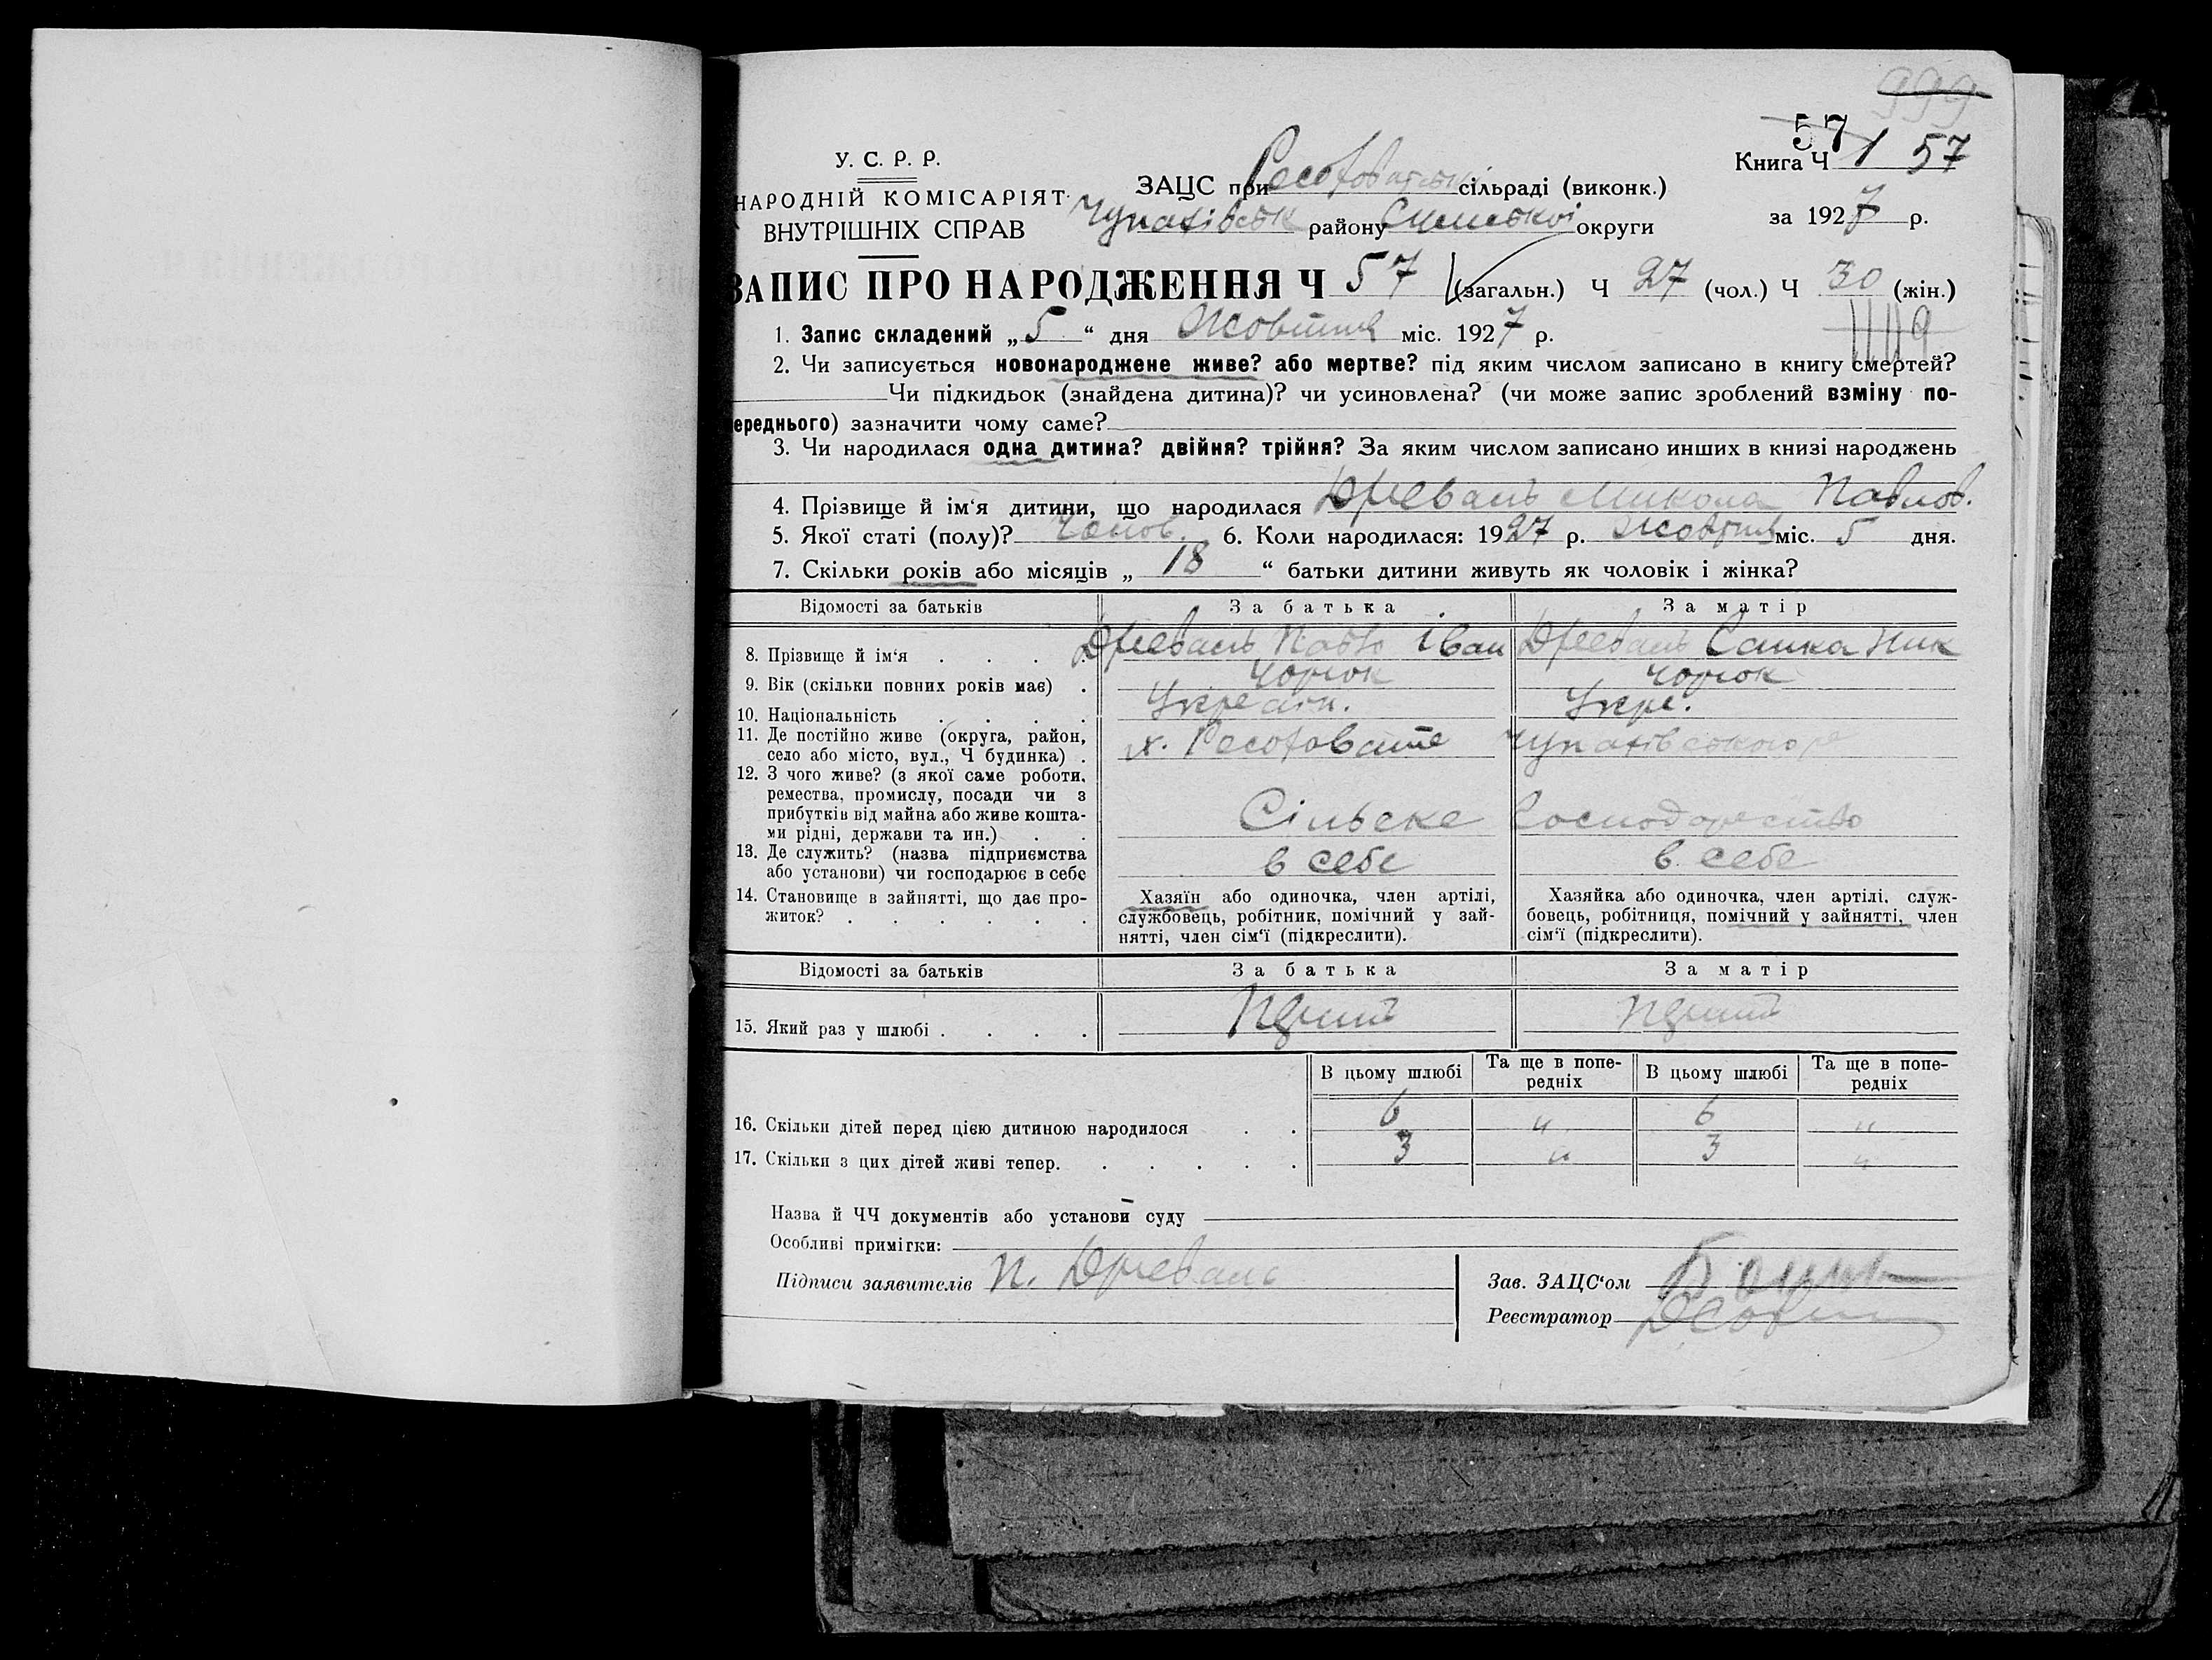 999
57
У. С. Р. Р.
Книга Ч 1 57
ЗАЦС при сільраді (виконк.)
НАРОДНІЙ КОМІСАРІЯТ
Чупахівськ району Сумської округи
за 1927 р.
ВНУТРІШНІХ СПРАВ
ЗАПИС ПРО НАРОДЖЕННЯ Ч 57 (загальн.) Ч 27 (чол.) Ч 30 (жін.)
1. Запис складений „5“ дня Жовтня міс. 1927 р.
2. Чи записується новонароджене живе? або мертве? під яким числом записано в книгу смертей?
Чи підкидьок (знайдена дитина)? чи усиновлена? (чи може запис зроблений взміну по-
ереднього) зазначити чому саме?
3. Чи народилася одна дитина? двійня? трійня? За яким числом записано инших в книзі народжень
4. Прізвище й ім‘я дитини, що народилася Древаль Микола Павлов.
5. Якої статі (полу)? Чолов. 6. Коли народилася: 1927 р. Жовтня міс. 5 дня.
7. Скільки років або місяців „ 18 “ батьки дитини живуть як чоловік і жінка?
Відомості за батьків За батька За матір
8. Прізвище й ім‘я . . . . Древаль Павло Іван Древаль Сашка Ник
9. Вік (скільки повних років має) . Сорок Сорок
10. Національність . . . . Україн. Укр.
11. Де постійно живе (округа, район,
село або місто, вул., Ч будинка) . х. Чупахівського р
12. З чого живе? (з якої саме роботи,
ремества, промислу, посади чи з
прибутків від майна або живе кошта-
ми рідні, держави та ин.) . . Сільске Господарство
13. Де служить? (назва підприємства
або установи) чи господарює в себе в себе в себе
14. Становище в зайнятті, що дає про-
житок? . . . . . .
Хазяїн або одиночка, член артілі,
службовець, робітник, помічний у зай-
нятті, член сім‘ї (підкреслити).
Хазяйка або одиночка, член артілі, служ-
бовець, робітниця, помічний у зайнятті, член
сім‘ї (підкреслити).
Відомості за батьків За батька За матір
15. Який раз у шлюбі . . . .
В цьому шлюбі Та ще в попе-
редніх В цьому шлюбі Та ще в попе-
редніх
16. Скільки дітей перед цією дитиною народилося . . 6 „ 6 „
17. Скільки з цих дітей живі тепер. . . . . . 3 „ 3 „
Назва й ЧЧ документів або установи суду
Особливі примітки:
Підписи заявителів П. Древаль
Зав. ЗАЦС‘ом
Реєстратор